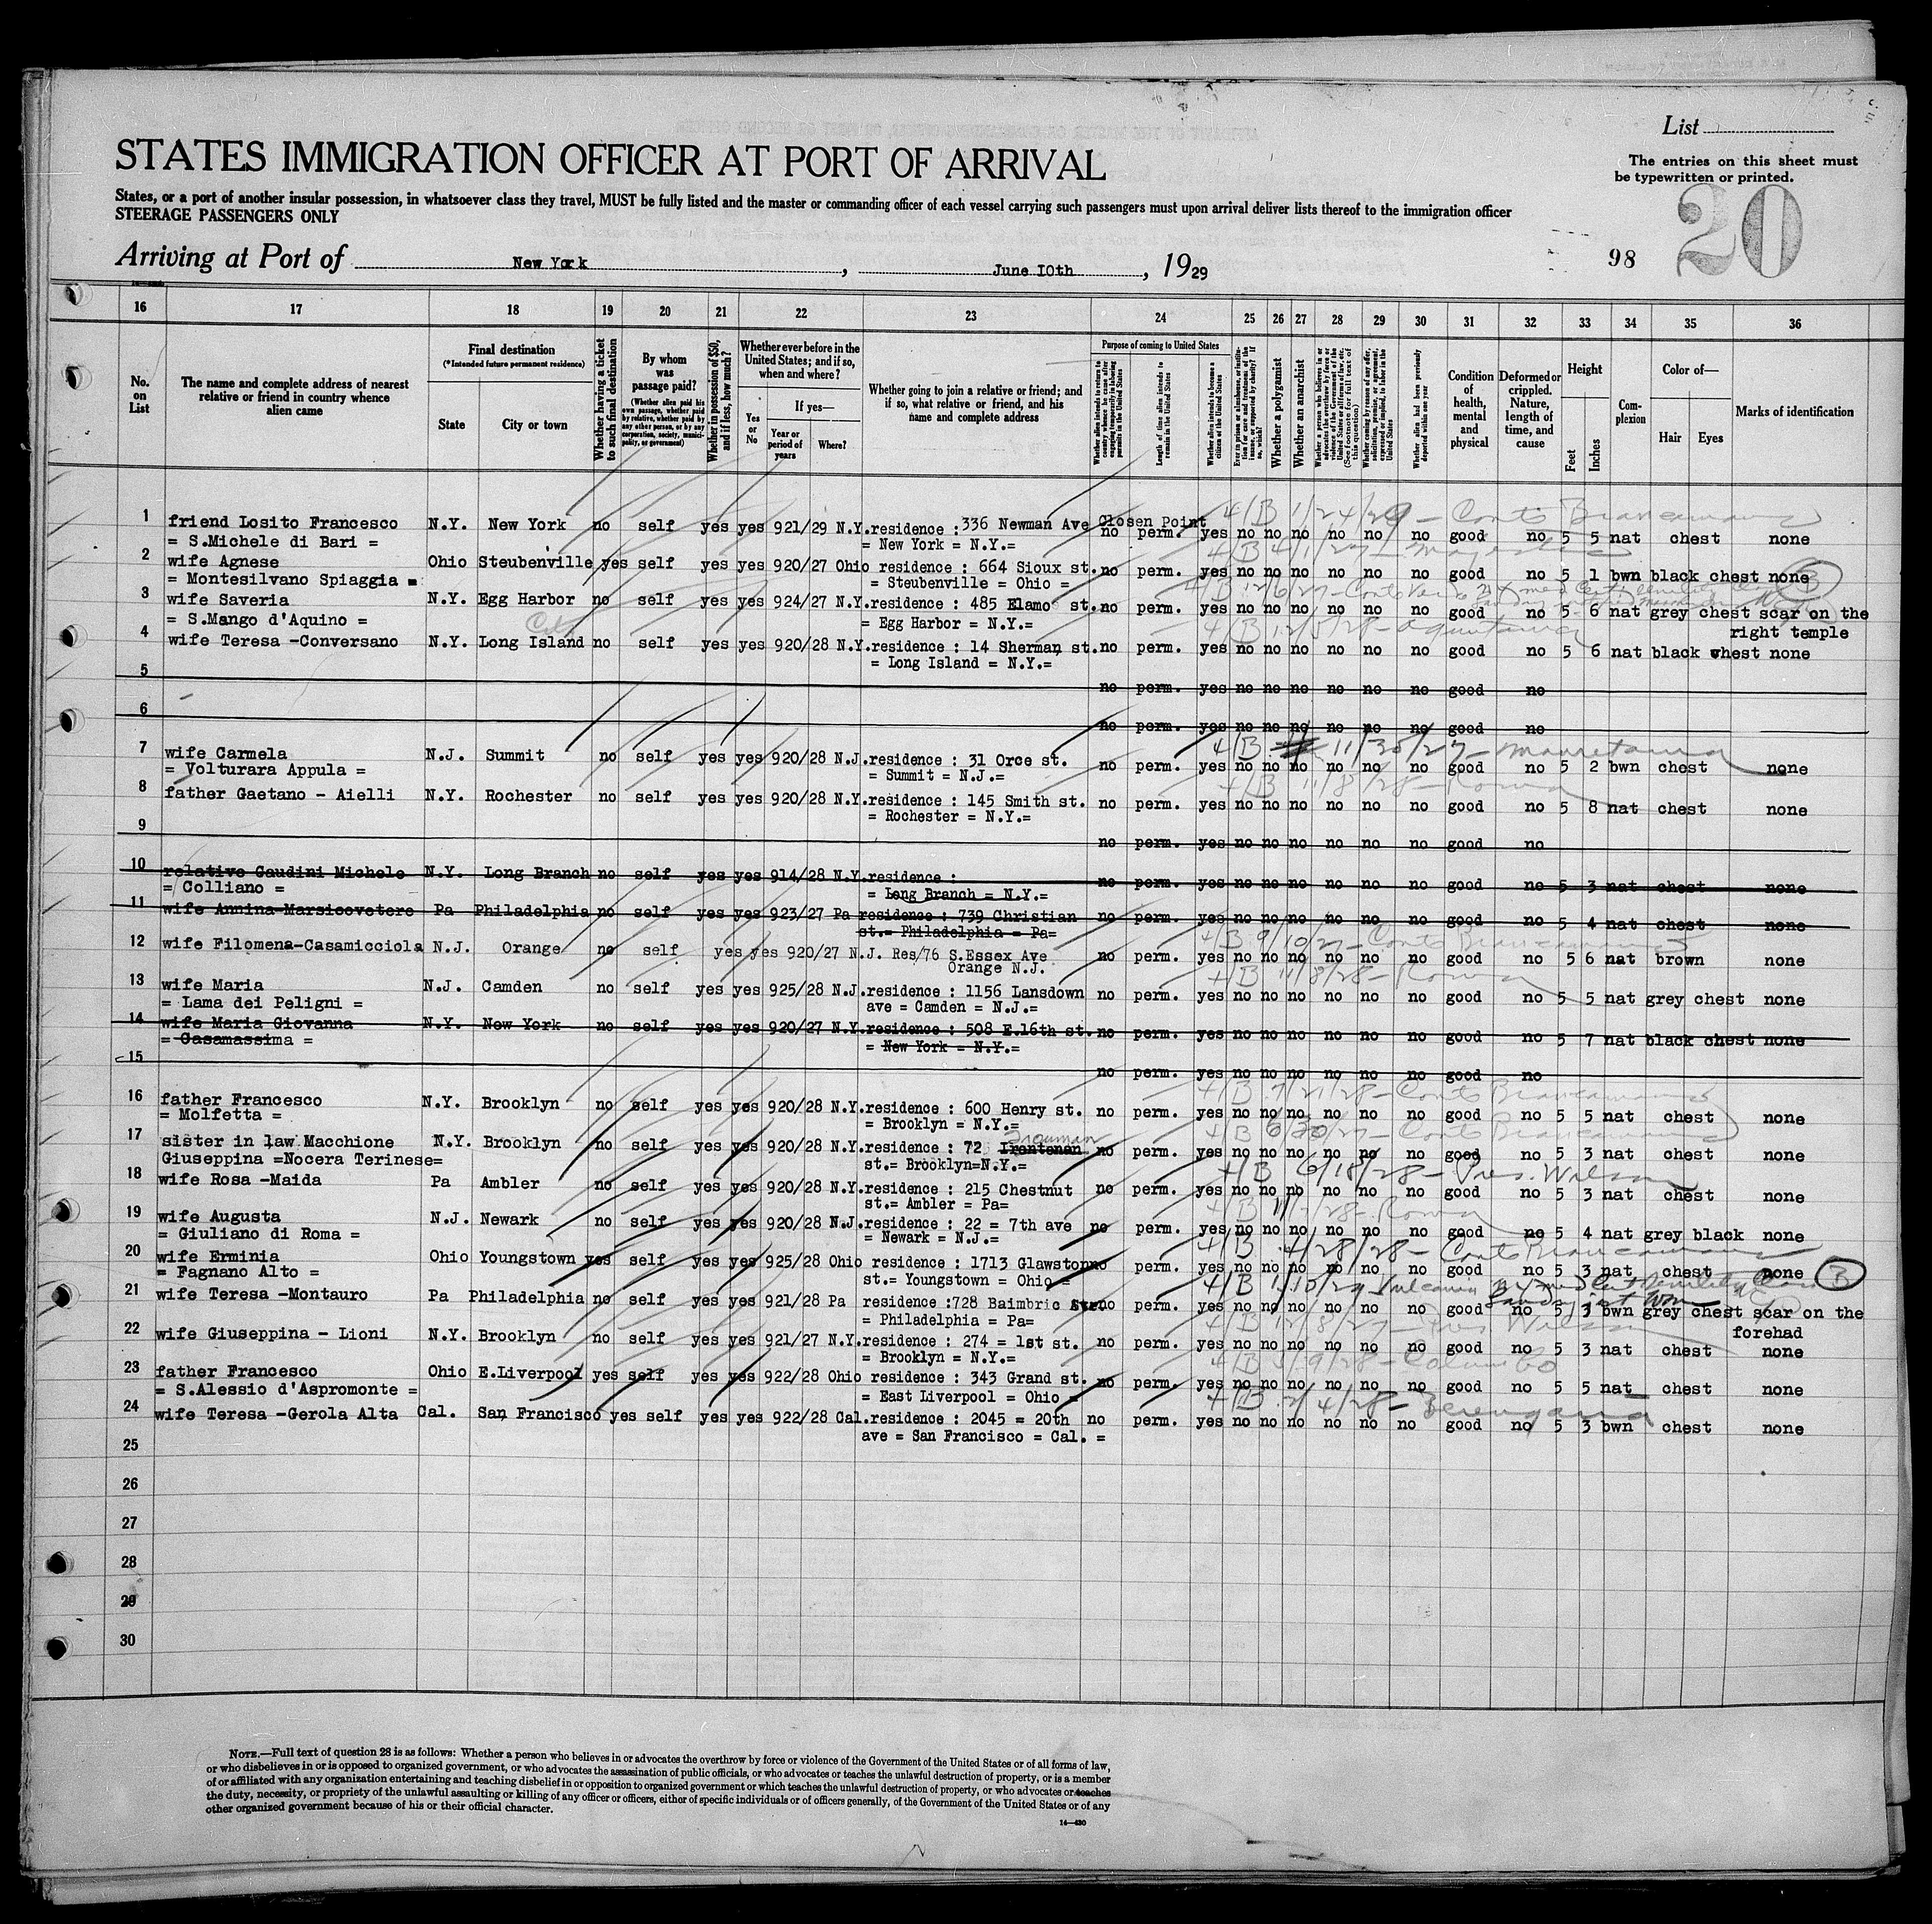 List
The entries on this sheet must
be typewritten or printed.
STATES IMMIGRATION OFFICER AT PORT OF ARRIVAL
States, or a port of another insular possession, in whatsoever class they travel, MUST be fully listed and the master or commanding officer of each vessel carrying such passengers must upon arrival deliver lists thereof to the immigration officer
STEERAGE PASSENGERS ONLY
20
Arriving at Port of New York, June 10th, 1929
98
16 17 18 19 20 21 22 23 24 25 26 27 28 29 30 31 32 33 34 35 36
No. on List
The name and complete address of nearest relative or friend in country whence alien came
Final destination
(*Intended future permanent residence)
State
City or town
Whether having a ticket to such final destination
By whom was passage paid?
(Whether alien paid his own passage, whether paid by relative, whether paid by any other person, or by any corporation, society, municipality, or government)
Whether in possession of $50, and if less, how much?
Whether ever before in the United States; and if so, when and where?
Yes or No
If yes—
Year or period of years
Where?
Whether going to join a relative or friend; and if so, what relative or friend, and his name and complete address
Purpose of coming to United States
Length of time alien intends to remain in the United States
Whether alien intends to become a citizen of the United States
Whether a polygamist
Whether an anarchist
Condition of health, mental and physical
Deformed or crippled. Nature, length of time, and cause
Height
Feet
Inches
Complexion
Color of—
Hair
Eyes
Marks of identification
1 friend Losito Francesco N.Y. New York no self yes yes 921/29 N.Y. residence : 336 Newman Ave Closen Point
= S.Michele di Bari = = New York = N.Y.= no perm. yes no no no no no no good no 5 5 nat chest none
4/B 1/24/29 - Conte Biancamano
2 wife Agnese Ohio Steubenville yes self yes yes 920/27 Ohio residence : 664 Sioux st. no perm. yes no no no no no no good no 5 1 bwn black chest none
= Montesilvano Spiaggia = = Steubenville = Ohio =
3 wife Saveria N.Y. Egg Harbor no self yes yes 924/27 N.Y. residence : 485 Elamo st. no perm. yes no no no no no no good no 5 6 nat grey chest scar on the
= S.Mango d'Aquino = = Egg Harbor = N.Y.= right temple
City
4 wife Teresa -Conversano N.Y. Long Island no self yes yes 920/28 N.Y. residence : 14 Sherman st. no perm. yes no no no no no no good no 5 6 nat black chest none
= Long Island = N.Y.=
4/B 12/5/28 - Aquitania
5 no perm. yes no no no no no no good no
6 no perm. yes no no no no no no good no
7 wife Carmela N.J. Summit no self yes yes 920/28 N.J. residence : 31 Orce st. no perm. yes no no no no no no good no 5 2 bwn chest none
= Volturara Appula = = Summit = N.J.=
4/B 11/30/27 - Mauretania
8 father Gaetano - Aielli N.Y. Rochester no self yes yes 920/28 N.Y. residence : 145 Smith st. no perm. yes no no no no no no good no 5 8 nat chest none
= Rochester = N.Y.=
4/B 11/8/28 - Roma
9 no perm. yes no no no no no no good no
10 relative Gaudini Michele N.Y. Long Branch no self yes yes 914/28 N.Y. residence : no perm. yes no no no no no no good no 5 3 nat chest none
= Colliano = = Long Branch = N.Y.=
11 wife Annina-Marsicovetere Pa Philadelphia no self yes yes 923/27 Pa residence : 739 Christian no perm. yes no no no no no no good no 5 4 nat chest none
st.= Philadelphia = Pa=
12 wife Filomena-Casamicciola N.J. Orange no self yes yes 920/27 N.J. Res/76 S.Essex Ave no perm. yes no no no no no no good no 5 6 nat brown none
Orange N.J.
4/B 9/10/27 - Conte Biancamano
13 wife Maria N.J. Camden no self yes yes 925/28 N.J. residence : 1156 Lansdown no perm. yes no no no no no no good no 5 5 nat grey chest none
= Lama dei Peligni = ave = Camden = N.J.=
4/B 11/8/28 - Roma
14 wife Maria Giovanna N.Y. New York no self yes yes 920/27 N.Y. residence : 508 E.16th st. no perm. yes no no no no no no good no 5 7 nat black chest none
= Casamassima = = New York = N.Y.=
15 no perm. yes no no no no no no good no
16 father Francesco N.Y. Brooklyn no self yes yes 920/28 N.Y. residence : 600 Henry st. no perm. yes no no no no no no good no 5 5 nat chest none
= Molfetta = = Brooklyn = N.Y.=
4/B 7/21/28 - Conte Biancamano
17 sister in law Macchione N.Y. Brooklyn no self yes yes 920/28 N.Y. residence : 72 no perm. yes no no no no no no good no 5 3 nat chest none
Giuseppina =Nocera Terinese= st.= Brooklyn=N.Y.=
4/B 6/20/27 - Conte Biancamano
18 wife Rosa -Maida Pa Ambler no self yes yes 920/28 N.Y. residence : 215 Chestnut no perm. yes no no no no no no good no 5 3 nat chest none
st.= Ambler = Pa=
4/B 6/18/28 - Pres. Wilson
19 wife Augusta N.J. Newark no self yes yes 920/28 N.J. residence : 22 = 7th ave no perm. yes no no no no no no good no 5 4 nat grey black none
= Giuliano di Roma = = Newark = N.J.=
20 wife Erminia Ohio Youngstown yes self yes yes 925/28 Ohio residence : 1713 Glawston no perm. yes no no no no no no good no 5 3 nat chest none
= Fagnano Alto = st.= Youngstown = Ohio =
4/B 4/28/28 - Conte Biancamano
21 wife Teresa -Montauro Pa Philadelphia no self yes yes 921/28 Pa residence :728 Baimbric str. no perm. yes no no no no no no good no 5 3 bwn grey chest scar on the
= Philadelphia = Pa= forehad
22 wife Giuseppina - Lioni N.Y. Brooklyn no self yes yes 921/27 N.Y. residence : 274 = 1st st. no perm. yes no no no no no no good no 5 3 nat chest none
= Brooklyn = N.Y.=
4/B 12/8/27 - Pres Wilson
23 father Francesco Ohio E.Liverpool yes self yes yes 922/28 Ohio residence : 343 Grand st. no perm. yes no no no no no no good no 5 5 nat chest none
= S.Alessio d'Aspromonte = = East Liverpool = Ohio =
24 wife Teresa -Gerola Alta Cal. San Francisco yes self yes yes 922/28 Cal. residence : 2045 = 20th no perm. yes no no no no no no good no 5 3 bwn chest none
ave = San Francisco = Cal. =
25
26
27
28
29
30
NOTE.—Full text of question 28 is as follows: Whether a person who believes in or advocates the overthrow by force or violence of the Government of the United States or of all forms of law,
or who disbelieves in or is opposed to organized government, or who advocates the assassination of public officials, or who advocates or teaches the unlawful destruction of property, or is a member
of or affiliated with any organization entertaining and teaching disbelief in or opposition to organized government or which teaches the unlawful destruction of property, or who advocates or teaches
the duty, necessity, or propriety of the unlawful assaulting or killing of any officer or officers, either of specific individuals or of officers generally, of the Government of the United States or of any
other organized government because of his or their official character.
14—430